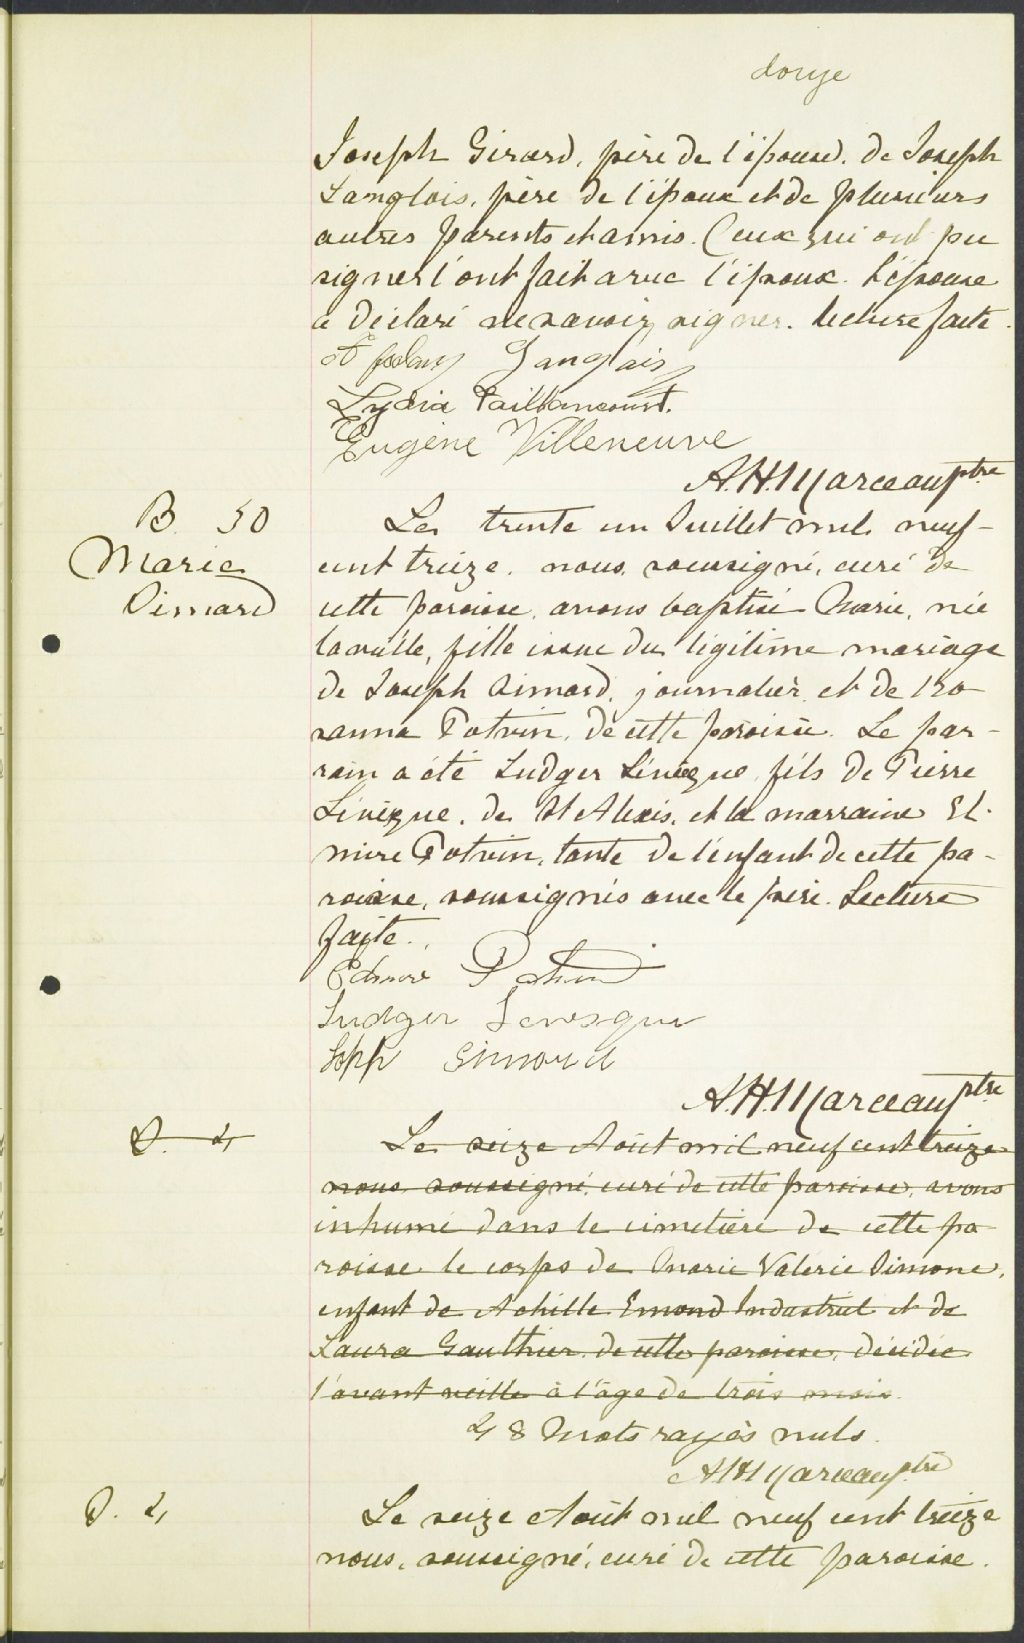 douze
Joseph Girard, père de l'épouse, de Joseph
Langlois, père de l'époux et de plusieurs
autres parents et amis. Ceux qui ont pu
signer l'ont fait avec l'époux. L'épouse
a déclaré ne savoir signer. Lecture faite.
Langlais
Lydia Vaillancourt.
Eugène Villeneuve
A.H. Marceau ptre
B. 50
Marie
Simard
Le trente un Juillet mil neuf-
cent treize, nous, soussigné, curé de
cette paroisse, avons baptisé Marie, née
la veille, fille issue du légitime mariage
de Joseph Simard, journalier et de Ro-
sanna Potvin, de cette paroisse. Le par-
rain a été Ludger Lévèque, fils de Pierre
Lévèque, de St Alexis, et la marraine El-
mire Potvin, tante de l'enfant de cette pa-
roisse, soussignés avec le père. Lecture
faite.
Potvin
Ludger Levesque
Jph Simard
A.H. Marceau ptre
S. 4
Le seize Août mil neuf cent treize
nous, soussigné, curé de cette paroisse, avons
inhumé dans le cimetière de cette pa-
roisse le corps de Marie Valerie Simone,
enfant de Achille Emond Industriel et de
Laura Gauthier de cette paroisse, décédée
l'avant veille à l'âge de trois mois.
48 Mots rayés nuls.
A.H. Marceau ptre
S. 4
Le seize Août mil neuf cent treize
nous, soussigné, curé de cette paroisse.